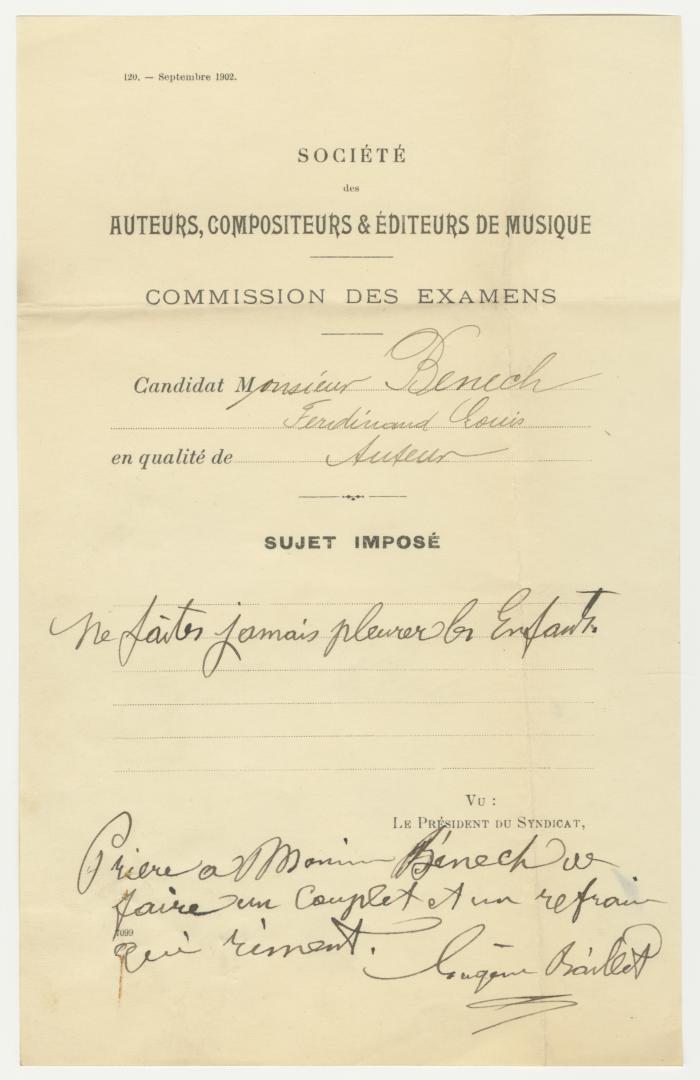 120. — Septembre 1902.
SOCIÉTÉ
des
AUTEURS, COMPOSITEURS & ÉDITEURS DE MUSIQUE
COMMISSION DES EXAMENS
Candidat Monsieur Benech
Ferdinand Louis
en qualité de Auteur
SUJET IMPOSÉ
Ne faites jamais pleurer les Enfants.
VU :
LE PRÉSIDENT DU SYNDICAT,
Prière à Monsieur Bénech de
faire un couplet et un refrain
7099
qui riment.
Eugène Baillet